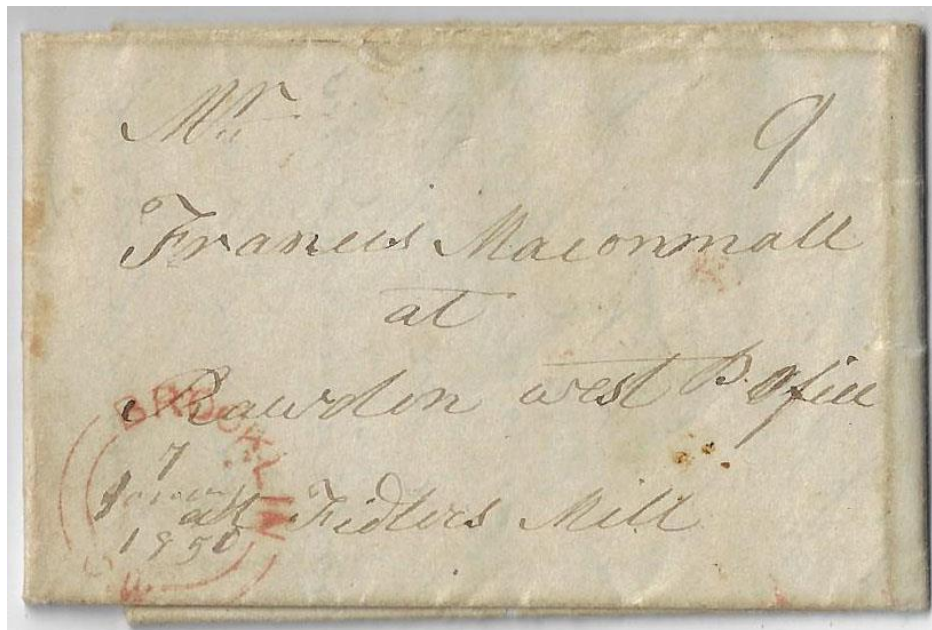 Mr
9
Francis Maconmall
at
Rawdon west P. Ofice
BROOKLIN
7
1850
at Fidlers Mill